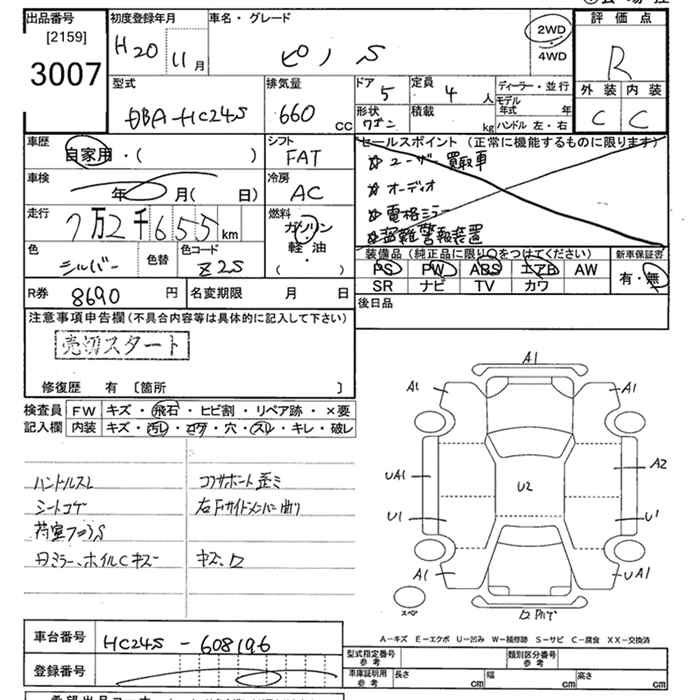 出品番号
[2159]
3007
初度登録年月
H20 11月
車名・グレード
ピノ S
2WD
4WD
評価点
R
外装 内装
C C
型式
DBA-HC24S
排気量
660 cc
ドア 5
定員 4人
形状 ワゴン
積載 kg
ディーラー・並行
モデル年式 年
ハンドル 左・右
車歴
自家用・( )
シフト
FAT
車検
年 月( 日)
冷房
AC
走行
7万2千655km
燃料
ガソリン
軽・油
( )
色
シルバー
色替
色コード
Z2S
R券 8690円
名変期限 月 日
セールスポイント(正常に機能するものに限ります)
☆ユーザー買取車
☆オーディオ
☆電格ミラー
☆盗難警報装置
装備品(純正品に限り○をつけてください)
PS PW ABS エアB AW
SR ナビ TV カワ
新車保証書
有・無
後日品
注意事項申告欄(不具合内容等は具体的に記入して下さい)
売切スタート
修復歴 有〔箇所 〕
検査員記入欄
FW キズ・飛石・ヒビ割・リペア跡・×要
内装 キズ・汚レ・コゲ・穴・スレ・キレ・破レ
ハンドルスレ
シートコゲ
荷室フロアS
ミラー、ホイルCキズ
コアサポート歪ミ
右Fサイドメンバー曲り
A1
A1
A1
UA1
A2
U2
U1
U1
A1
UA1
スペア
A-キズ E-エクボ U-凹み W-補修跡 S-サビ C-腐食 XX-交換済
車台番号
HC24S-608196
登録番号
型式指定番号
参考
類別区分番号
参考
車庫証明用
参考
長さ cm
幅 cm
高さ cm